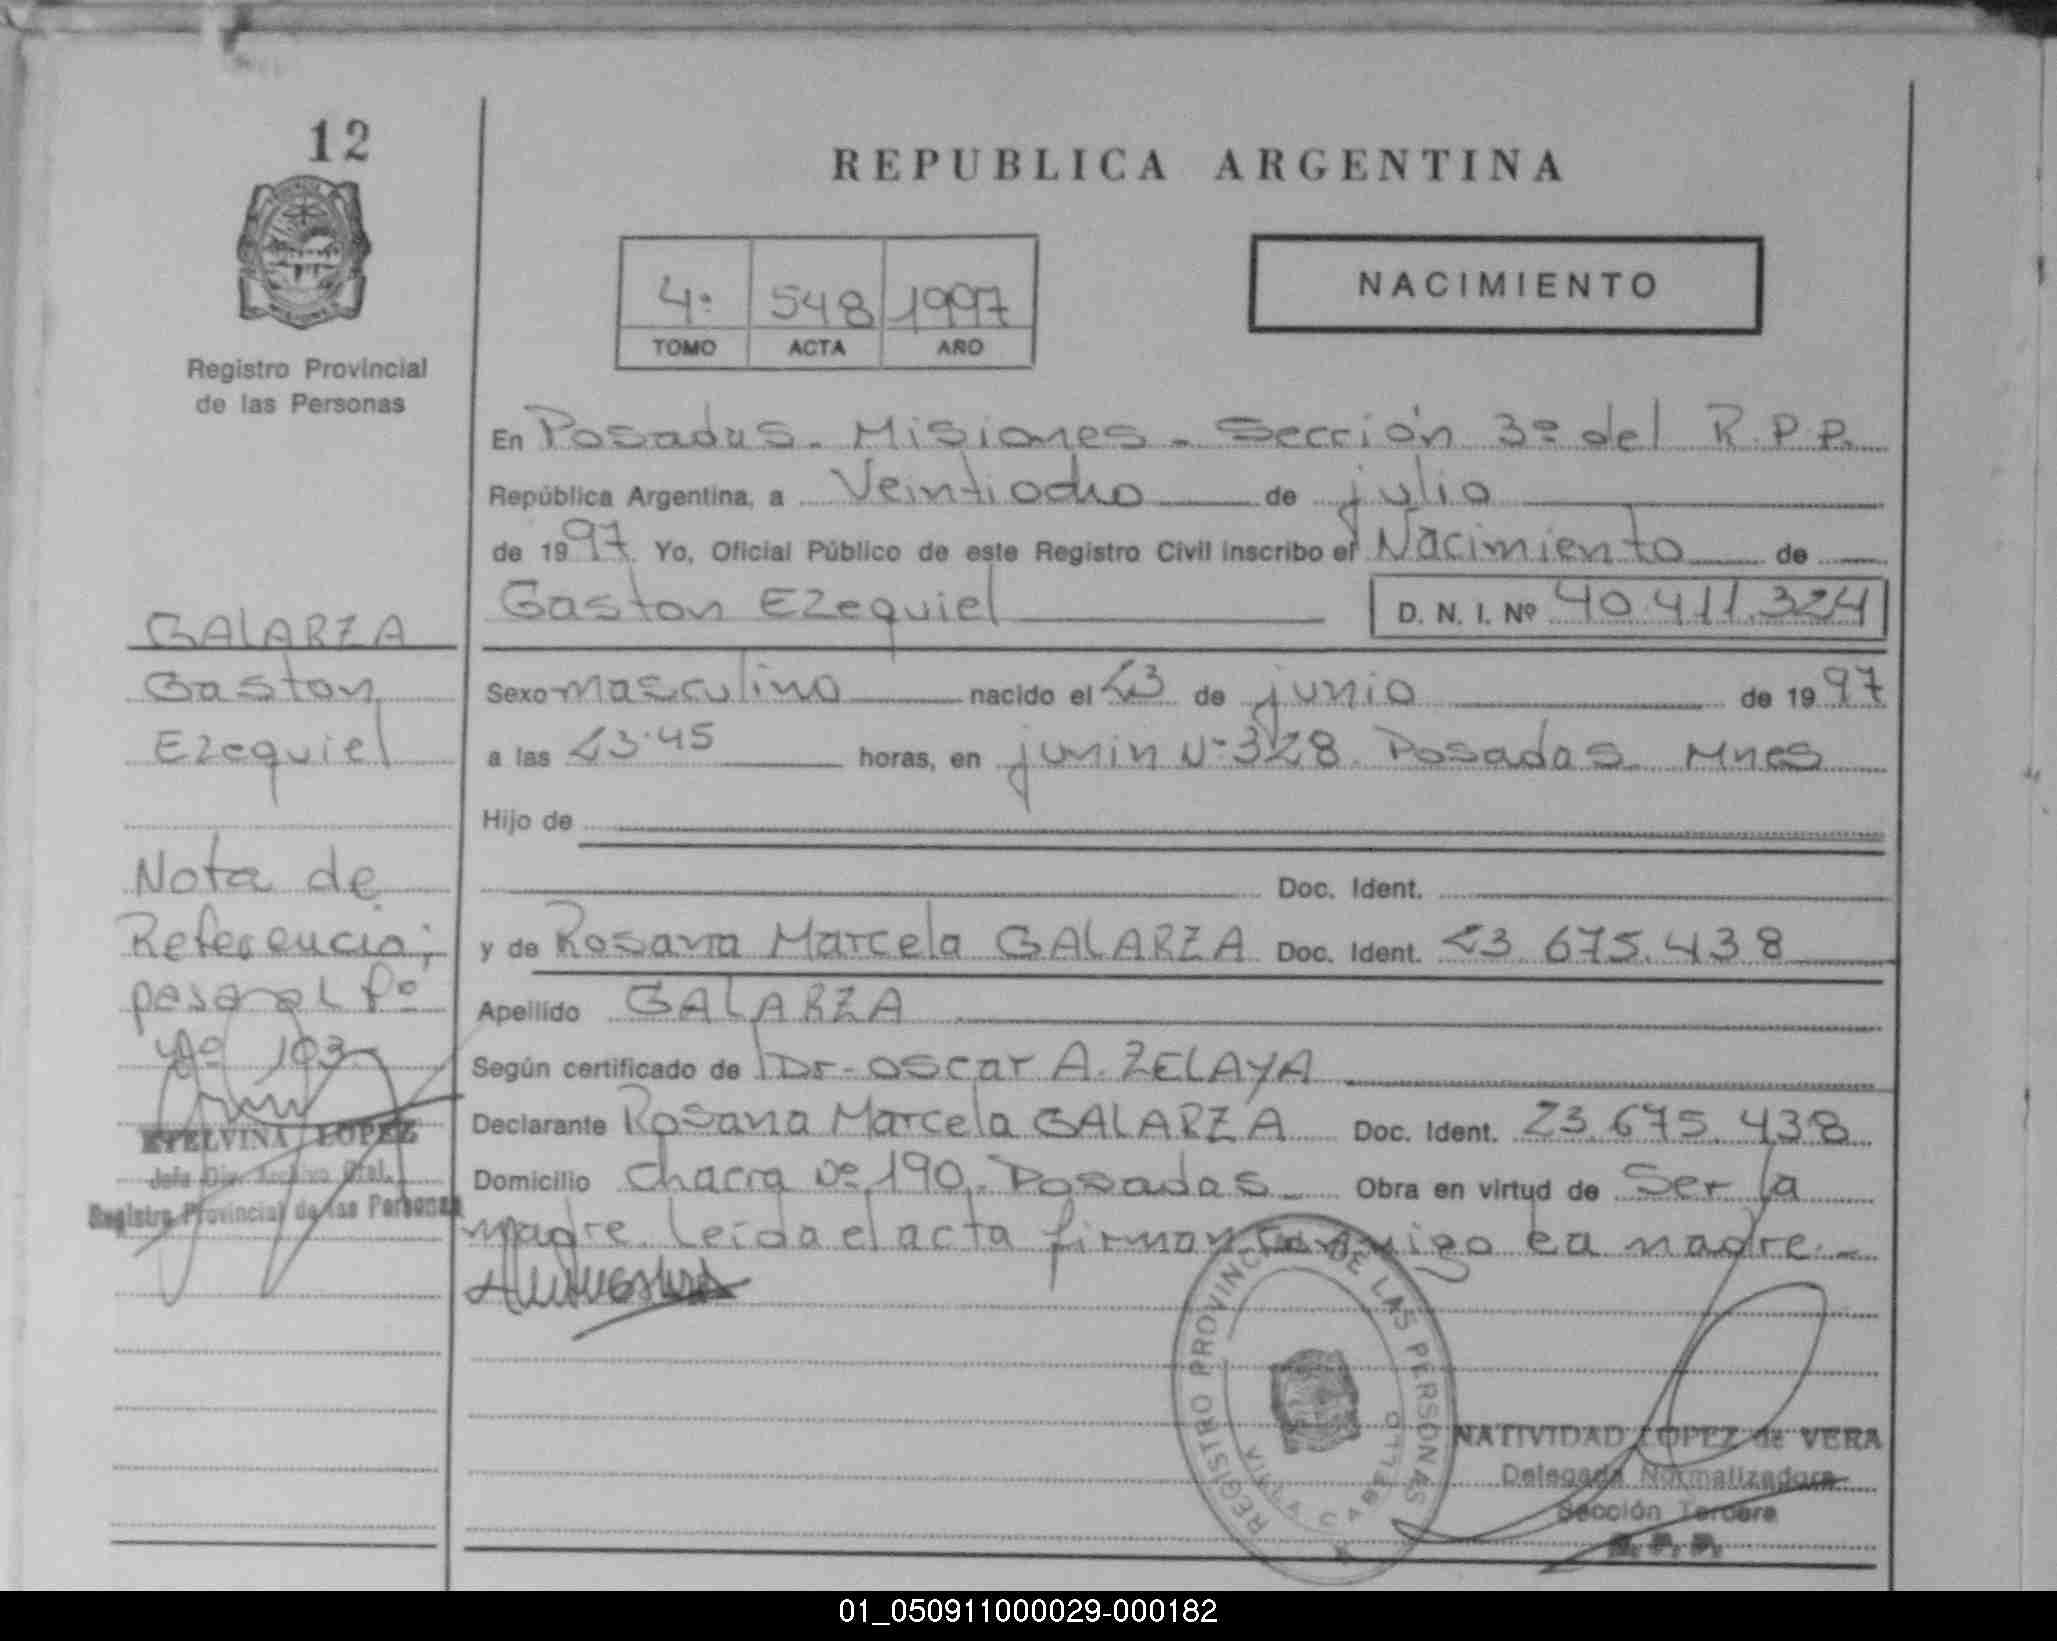 12
REPUBLICA ARGENTINA
4º 548 1997
TOMO ACTA AÑO
NACIMIENTO
Registro Provincial
de las Personas
En Posadas. Misiones. Sección 3º del R.P.P.
República Argentina, a Veintiocho de julio
de 1997 Yo, Oficial Público de este Registro Civil inscribo el Nacimiento de
Gaston Ezequiel D. N. I. Nº 40.411.324
GALARZA
Gaston
Ezequiel
Sexo masculino nacido el 23 de junio de 1997
a las 23.45 horas, en junin Nº 328. Posadas. Mnes
Hijo de
Doc. Ident.
y de Rosana Marcela GALARZA Doc. Ident. 23.675.438
Apellido GALARZA
Según certificado de Dr. Oscar A. ZELAYA
Declarante Rosana Marcela GALARZA Doc. Ident. 23.675.438
Domicilio Chacra Nº 190. Posadas. Obra en virtud de Ser la
madre. Leída el acta firman conmigo la madre.
Nota de
Referencia;
pasa al Fº
Nº 103
ETELVINA LOPEZ
Jefa Div. Archivo Gral.
Registro Provincial de las Personas
REGISTRO PROVINCIAL DE LAS PERSONAS
VILLA CABELLO
NATIVIDAD LOPEZ de VERA
Delegada Normalizadora
Sección Tercera
R. P. P.
01_050911000029-000182